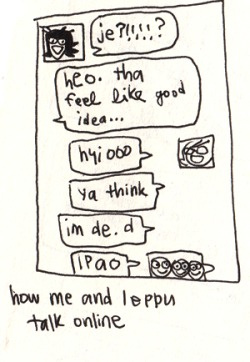 je?!!!!?
heo. tha
feel like good
idea...
hyiooo
ya think
im de.d
lpao
how me and loppu
talk online